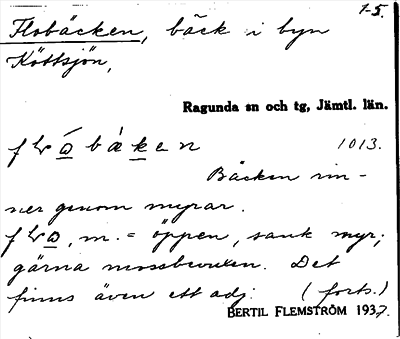 1-5.
Flobäcken, bäck i byn
Köttsjön,
Ragunda sn och tg, Jämtl. län.
1013.
Bäcken rin-
ner genom myrar.
m. = öppen, sank myr;
gärna mossbevuxen. Det
finns även ett adj. (forts.)
BERTIL FLEMSTRÖM 1937.